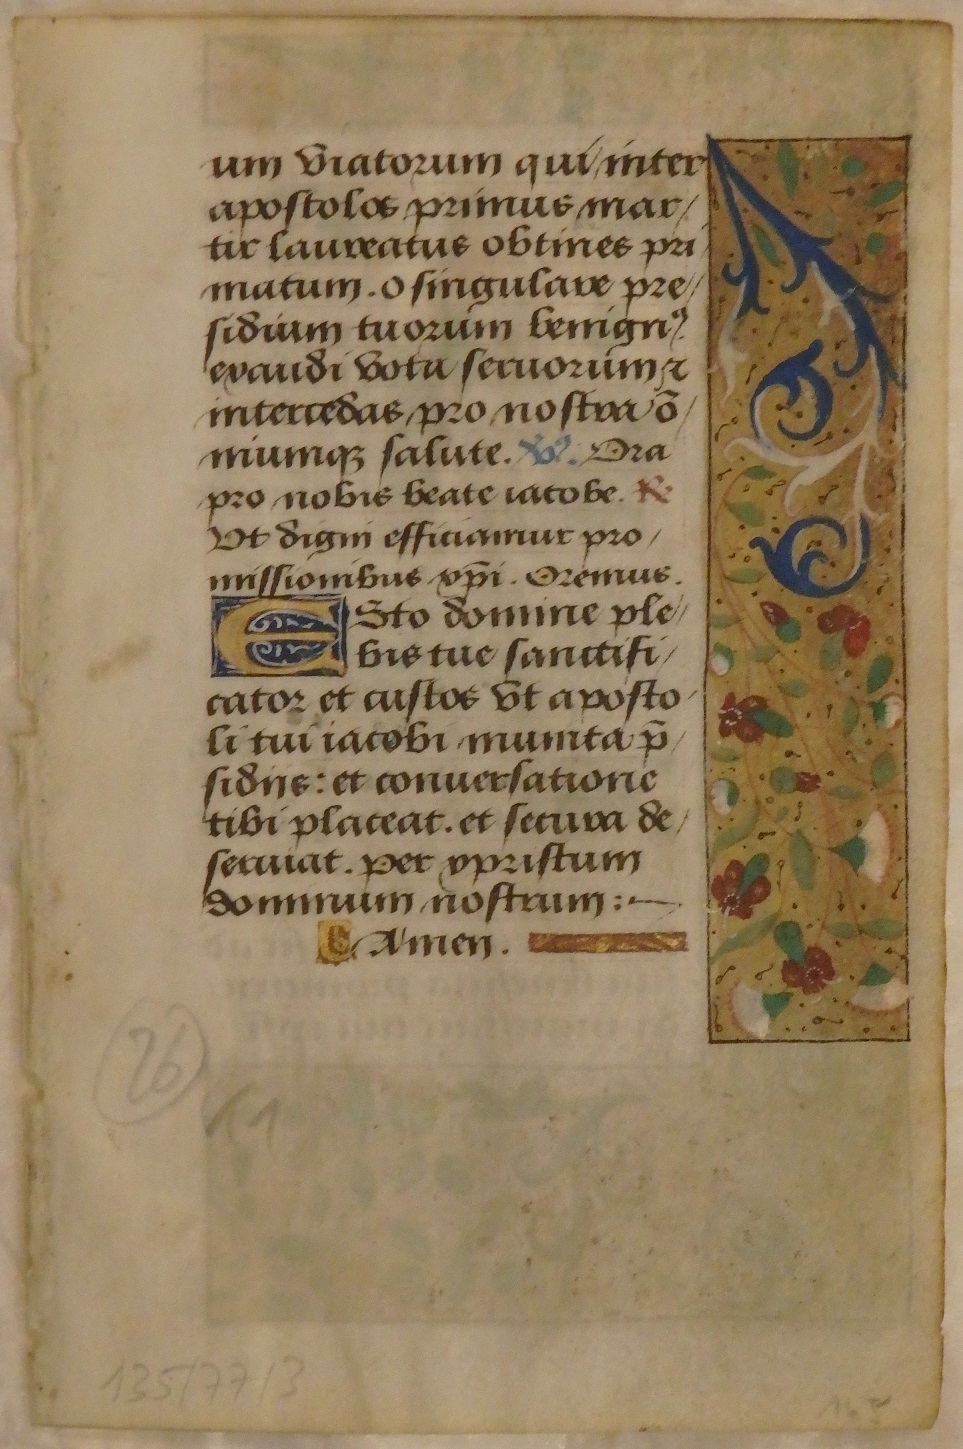 um viatorum qui inter
apostolos primus mar/
tir laureatus obtines pri
matum. o singulare pre/
sidium tuorum benignꝰ
exaudi vota seruorum ⁊
intercedas pro nostra õ
niumqꝫ salute. ℣. Ora
pro nobis beate iacobe. ℟
Ut digni efficiamur pro/
missionibus xp̄i. Oremus.
ESto domine ple/
bis tue sanctifi/
cator et custos vt aposto
li tui iacobi munita p̄/
sidijs: et conuersatione
tibi placeat. et secura de/
seruiat. per xpristum
dominum nostrum:
Amen.
26
135/77/3